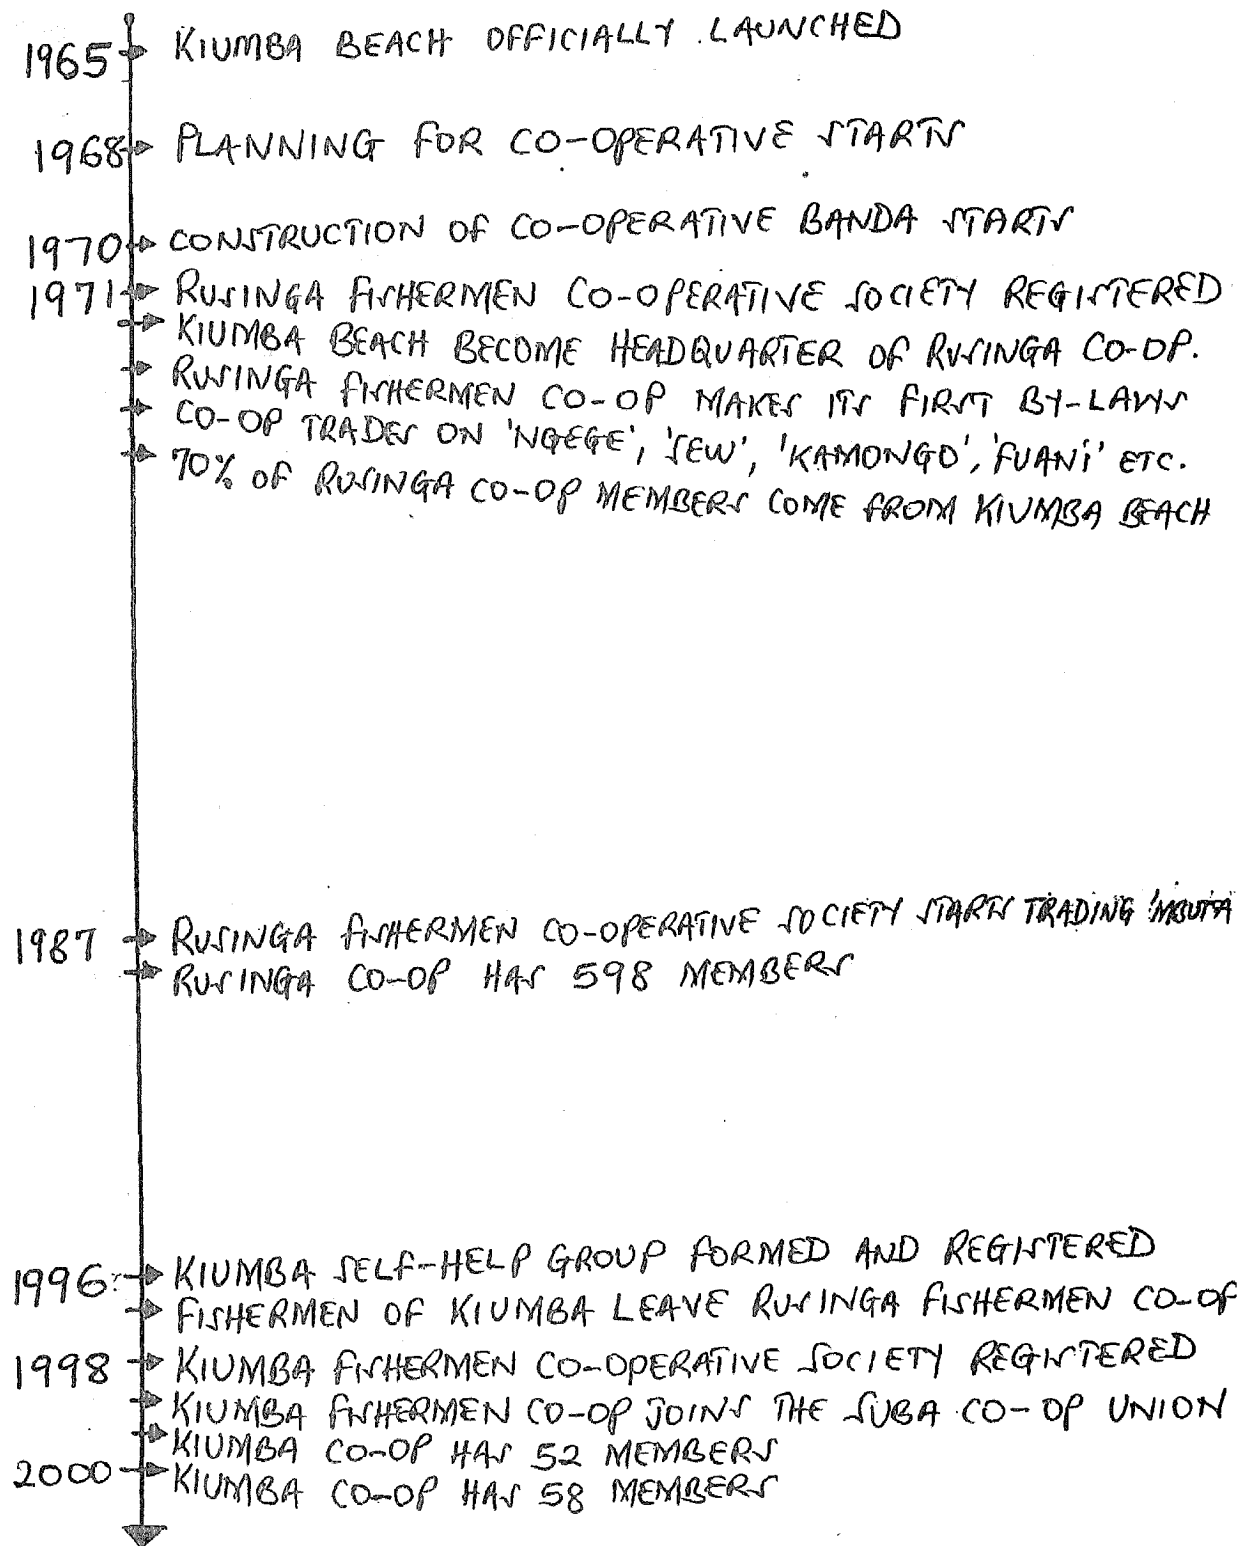 1965 KIUMBA BEACH OFFICIALLY LAUNCHED
1968 PLANNING FOR CO-OPERATIVE STARTS
1970 CONSTRUCTION OF CO-OPERATIVE BANDA STARTS
1971 RUSINGA FISHERMEN CO-OPERATIVE SOCIETY REGISTERED
KIUMBA BEACH BECOME HEADQUARTER OF RUSINGA CO-OP.
RUSINGA FISHERMEN CO-OP MAKES ITS FIRST BY-LAWS
CO-OP TRADES ON 'NGEGE', 'SEW', 'KAMONGO', 'FUANI' ETC.
70% OF RUSINGA CO-OP MEMBERS COME FROM KIUMBA BEACH
1987 RUSINGA FISHERMEN CO-OPERATIVE SOCIETY STARTS TRADING 'MBUTA
RUSINGA CO-OP HAS 598 MEMBERS
1996 KIUMBA SELF-HELP GROUP FORMED AND REGISTERED
FISHERMEN OF KIUMBA LEAVE RUSINGA FISHERMEN CO-OP
1998 KIUMBA FISHERMEN CO-OPERATIVE SOCIETY REGISTERED
KIUMBA FISHERMEN CO-OP JOINS THE SUBA CO-OP UNION
KIUMBA CO-OP HAS 52 MEMBERS
2000 KIUMBA CO-OP HAS 58 MEMBERS